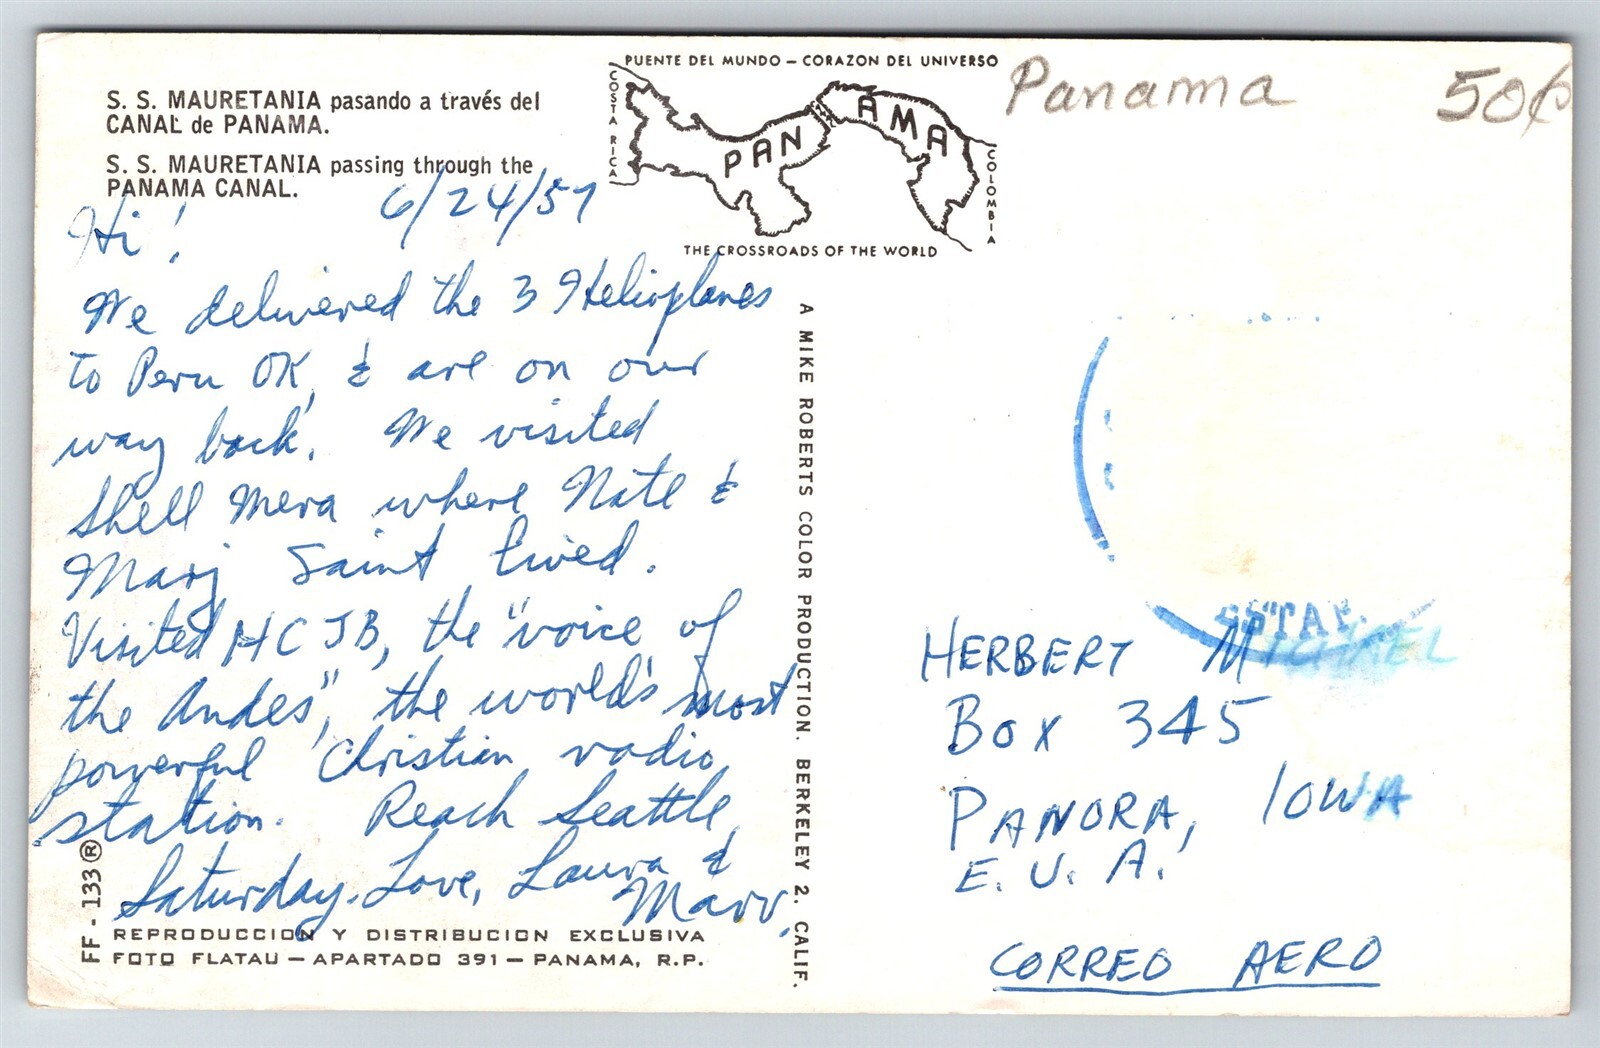 S. S. MAURETANIA pasando a través del
CANAL de PANAMA.
S. S. MAURETANIA passing through the
PANAMA CANAL.
PUENTE DEL MUNDO – CORAZON DEL UNIVERSO
COSTA RICA
PANAMA
COLOMBIA
THE CROSSROADS OF THE WORLD
Panama
50¢
6/24/57
Hi!
We delivered the 3 Helioplanes
to Peru OK, & are on our
way back. We visited
Shell Mera where Nate &
Marj Saint lived.
Visited HCJB, the "voice of
the Andes", the world's most
powerful Christian radio
station. Reach Seattle,
Saturday. Love, Laura &
Marv.
FF - 133 ®
REPRODUCCION Y DISTRIBUCION EXCLUSIVA
FOTO FLATAU – APARTADO 391 – PANAMA, R.P.
A MIKE ROBERTS COLOR PRODUCTION. BERKELEY 2. CALIF.
ESTAF
HERBERT MICHAEL
BOX 345
PANORA, IOWA
E. U. A.
CORREO AERO